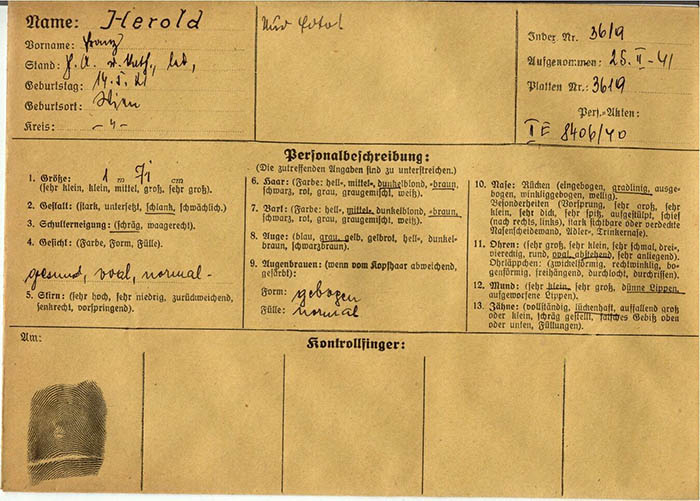 Name: Herold
Vorname: Franz
Stand: led,
Geburtstag: 14. 5. 21
Geburtsort: Wien
Kreis: - " -
Nur Foto!
Index Nr. 3619
Aufgenommen: 25. II - 41
Platten Nr.: 3619
Pers.-Akten:
II E 8406/40
Personalbeschreibung:
(Die zutreffenden Angaben sind zu unterstreichen.)
1. Größe: 1 m 71 cm
(sehr klein, klein, mittel, groß, sehr groß).
2. Gestalt: (stark, untersetzt, schlank, schwächlich.)
3. Schulterneigung: (schräg, waagerecht).
4. Gesicht: (Farbe, Form, Fülle).
gesund, oval, normal -
5. Stirn: (sehr hoch, sehr niedrig, zurückweichend,
senkrecht, vorspringend).
6. Haar: (Farbe: hell-, mittel-, dunkelblond, -braun,
schwarz, rot, grau, graugemischt, weiß).
7. Bart: (Farbe: hell-, mittel-, dunkelblond, -braun,
schwarz, rot, grau, graugemischt, weiß).
8. Auge: (blau, grau, gelb, gelbrot, hell-, dunkel-
braun, schwarzbraun).
9. Augenbrauen: (wenn vom Kopfhaar abweichend,
gefärbt):
Form: gebogen
Fülle: normal
10. Nase: Rücken (eingebogen, gradlinig, ausge-
bogen, winkliggebogen, wellig).
Besonderheiten (Vorsprung, sehr groß, sehr
klein, sehr dick, sehr spitz, aufgestülpt, schief
(nach rechts, links), stark sichtbare oder verdeckte
Nasenscheidewand, Adler-, Trinkernase).
11. Ohren: (sehr groß, sehr klein, sehr schmal, drei-,
viereckig, rund, oval, abstehend, sehr anliegend).
Ohrläppchen: (zwickelförmig, rechtwinklig, bo-
genförmig, freihängend, durchlocht, durchrissen).
12. Mund: (sehr klein, sehr groß, dünne Lippen,
aufgeworfene Lippen).
13. Zähne: (vollständig, lückenhaft, auffallend groß
oder klein, schräg gestellt, falsches Gebiß oben
oder unten, Füllungen).
Am:
Kontrollfinger: